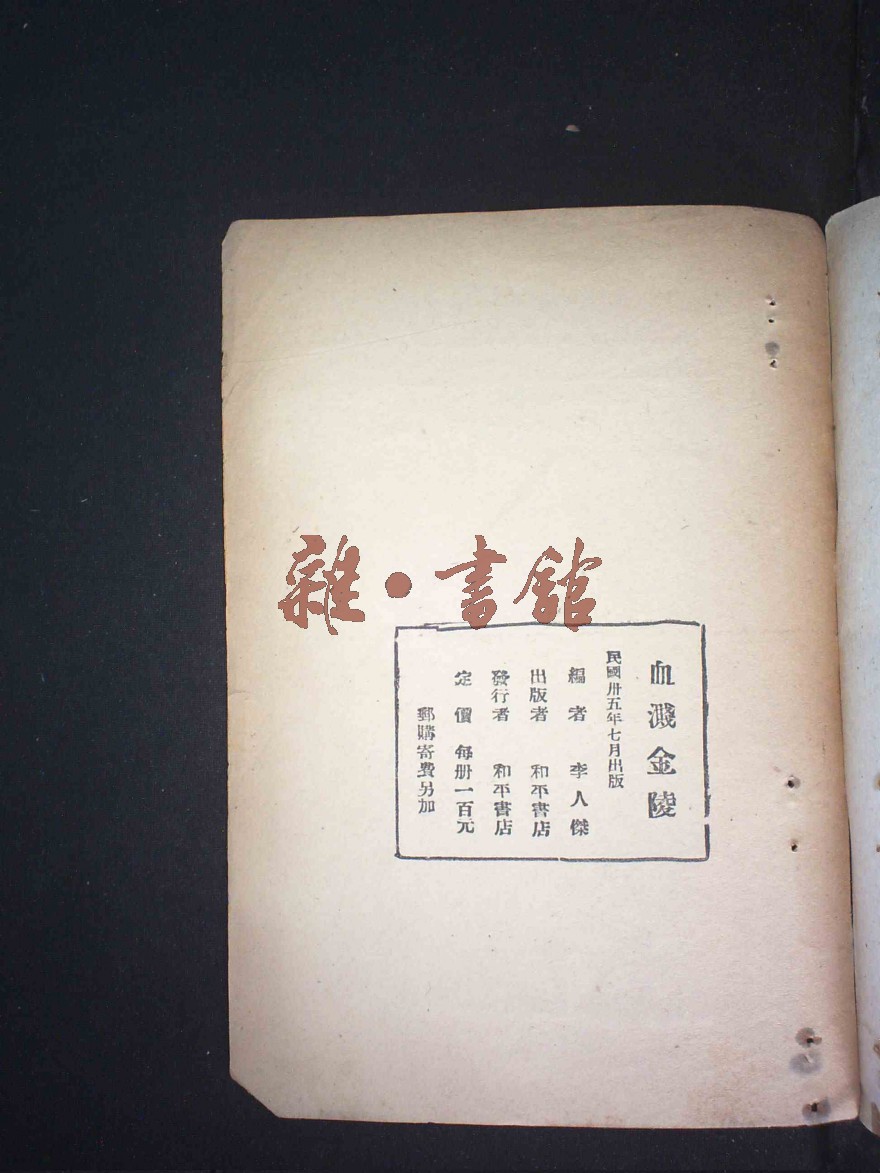 雜·書館
血濺金陵
民國卅五年七月出版
編者 李人傑
出版者 和平書店
發行者 和平書店
定價 每册一百元
郵購寄費另加